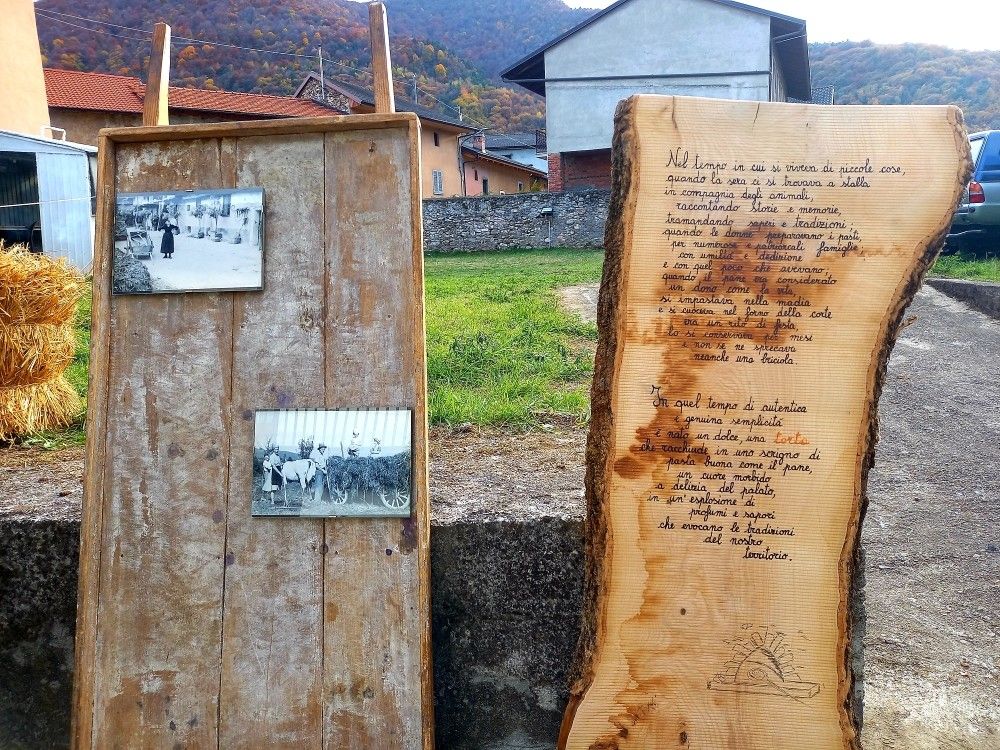 Nel tempo in cui si viveva di piccole cose,
quando la sera ci si trovava a stalla
in compagnia degli animali,
raccontando storie e memorie,
tramandando saperi e tradizioni;
quando le donne preparavano i pasti,
per numerose e patriarcali famiglie,
con umiltà e dedizione
e con quel poco che avevano;
quando il pane era considerato
un dono come la vita,
si impastava nella madia
e si cuoceva nel forno della corte
era un rito di festa,
lo si conservava per mesi
e non se ne sprecava
neanche una briciola.
In quel tempo di autentica
e genuina semplicità
è nato un dolce, una torta
che racchiude in uno scrigno di
pasta buona come il pane,
un cuore morbido
a delizia del palato,
in un' esplosione di
profumi e sapori
che evocano le tradizioni
del nostro
territorio.